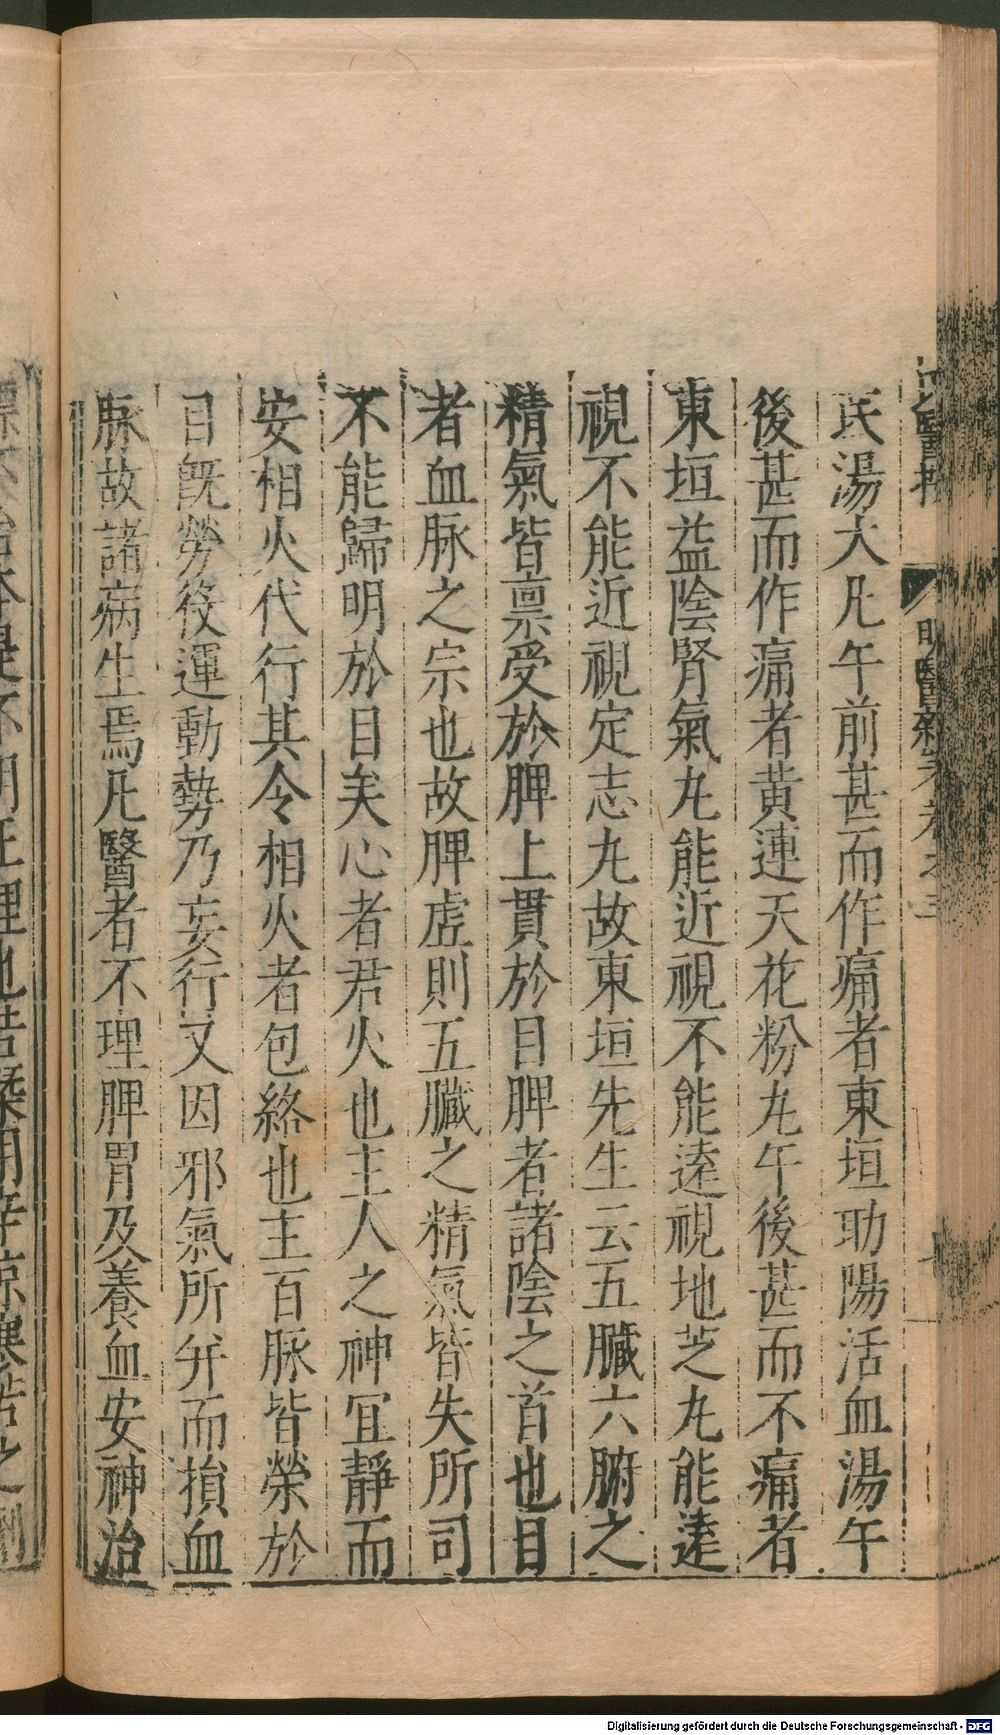 氏湯大凡午前甚而作痛者東垣助陽活血湯午
後甚而作痛者黃連天花粉丸午後甚而不痛者
東垣益陰腎氣丸能近視不能遠視地芝丸能遠
視不能近視定志丸故東垣先生云五臟六腑之
精氣皆禀受於脾上貫於目脾者諸陰之首也目
者血脉之宗也故脾虛則五臟之精氣皆失所司
不能歸明於目矣心者君火也主人之神宜靜而
安相火代行其令相火者包絡也主百脉皆榮於
目既勞役運動勢乃妄行又因邪氣所并而損血
脉故諸病生焉凡醫者不理脾胃及養血安神治
標不治本是不明正理也若槩用辛凉寒苦之劑
明醫雜著卷之三
Digitalisierung gefördert durch die Deutsche Forschungsgemeinschaft - DFG